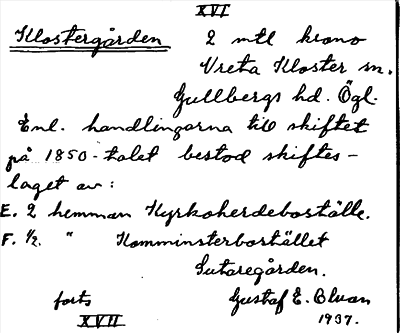 XVI
Klostergården 2 mtl krono
Vreta Kloster sn.
Gullbergs hd. Ögl.
Enl. handlingarna till skiftet
på 1850-talet bestod skiftes-
laget av:
E. 2 hemman Kyrkoherdeboställe.
F. 1/2. " Komminsterbostället
Sutaregården.
forts Gustaf E. Bluan
XVII 1937.